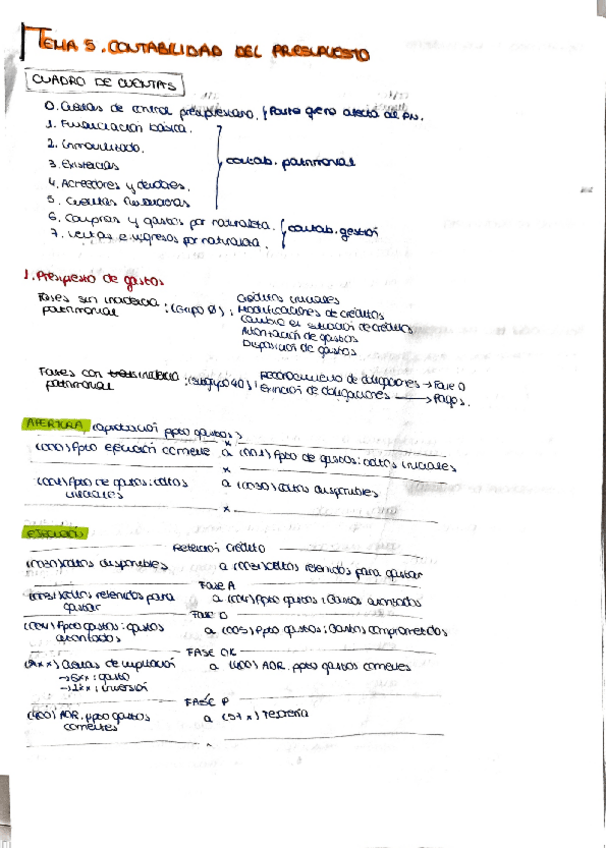 TEMA 5. CONTABILIDAD DEL PRESUPUESTO
CUADRO DE CUENTAS
0. Cuentas de control presupuestario. Parte que no afecta al PN.
1. Financiación básica.
2. Inmovilizado.
3. Existencias
contab. patrimonial
4. Acreedores y deudores.
5. Cuentas financieras
6. Compras y gastos por naturaleza.
contab. gestión
7. Ventas e ingresos por naturaleza.
1. Presupuesto de gastos
Fases sin incidencia patrimonial : (Grupo 0) :
Créditos iniciales
Modificaciones de créditos
Cambio en situación de créditos
Autorización de gastos
Disposición de gastos
Fases con incidencia patrimonial : (subgrupo 40) :
Reconocimiento de obligaciones → Fase O
Extinción de obligaciones → Pagos.
APERTURA (aprobación ppto gastos)
x
(000) Ppto ejercicio corriente a (001) Ppto de gastos: cditos iniciales
x
(001) Ppto de gastos: cditos iniciales a (0030) cditos disponibles
x
EJECUCIÓN
Retención crédito
cditos disponibles a cditos retenidos para gastar
Fase A
cditos retenidos para gastar a (004) Ppto gastos: Gastos autorizados
Fase D
(004) Ppto gastos: gastos autorizados a (005) Ppto gastos: Gastos comprometidos
FASE OK
Cuentas de imputación a (400) AOR. ppto gastos corrientes
→ 6xx : gasto
→ 2xx : inversión
FASE P
(400) AOR. ppto gastos corrientes a (57x) Tesorería